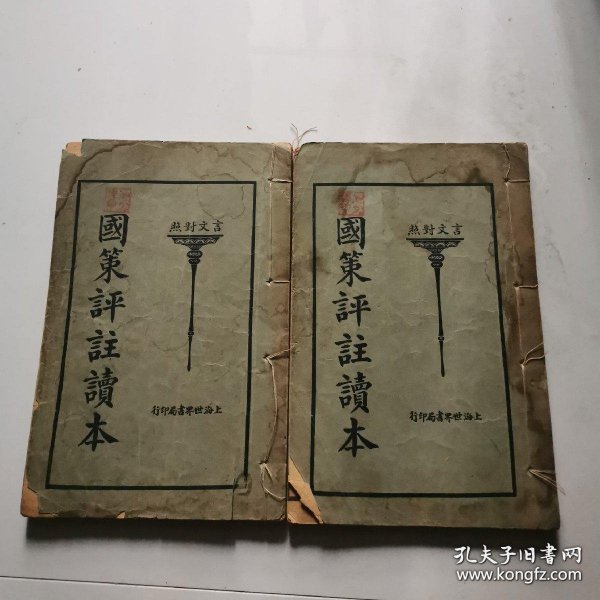 言文對照
國策評註讀本
上海世界書局印行
言文對照
國策評註讀本
上海世界書局印行
孔夫子旧书网
www.kongfz.com